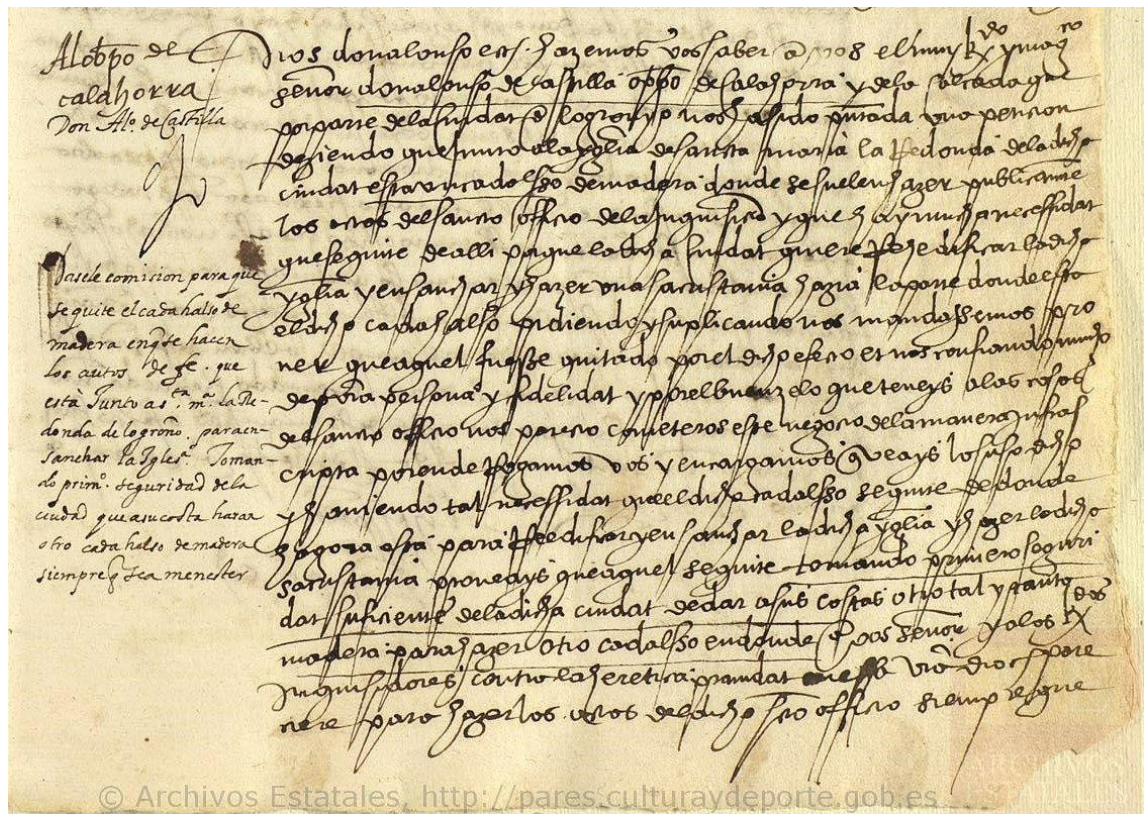 Al obpo de
calahorra
Don Alo. de Castilla
Dasele comision para que
se quite el cadahalso de
madera en q se hacen
los autos de fe. que
està Junto a s.ta m.a la Re-
donda de logroño. para en-
sanchar la Igles.a Toman-
do prim.o seguridad de la
ciudad que a su costa haran
otro cadahalso de madera
siempre q sea menester
Nos don alonso etc. hazemos vos saber a vos el muy R.do y mag.co
señor don alonso de castilla obpo de calahorra y dela calçada que
por parte dela ciudat de logroño nos ha sido pntada una peticion
deziendo que junto ala ygllia de sancta maria la Redonda dela dicha
ciudat esta un cadalso de madera donde se suelen hazer publicamte
los actos del sancto officio dela inquisicion y que hay mucha necessidat
que se quite de alli porque la dicha ciudat quiere Reedificar la dicha
yglia y ensanchar y hazer una sacristania hazia la parte donde esta
el dicho cadahalso pidiendo y suplicando nos mandassemos pro
ueer que aquel fuesse quitado por el dicho efecto et nos confiando mucho
de vra persona y fidelidat y por el buen zelo que teneys alas cosas
del sancto officio nos parecio cometeros este negocio dela manera infras
cripta por ende Rogamos vos y encargamos q veays lo suso dicho
y haviendo tal necessidat que el dicho cadalso se quite de donde
agora esta para Reedificar y ensanchar la dicha yglia y hazer la dicha
sacristania proveays que aquel se quite tomando primero seguri
dat suficiente dela dicha ciudat de dar a sus costas otro tal y tanta
madera para hazer otro cadalso en donde a vos señor y alos R.dos
Inquisidores contra la heretica pravidat en essa vra diocs pare
ciere para hazer los actos del dicho scto officio siempre que
© Archivos Estatales, http://pares.culturaydeporte.gob.es
ARCHIVOS
ESTATALES